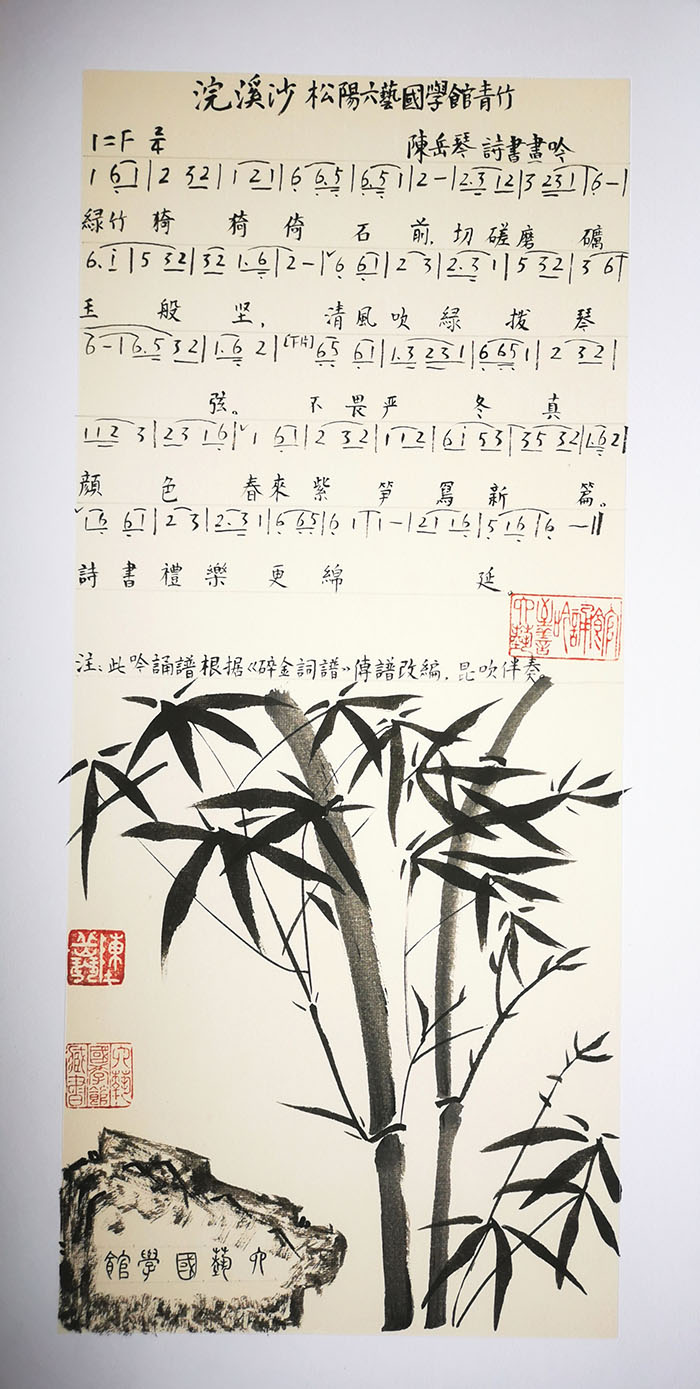 浣溪沙 松陽六藝國學館青竹
1=F 2/4 陳岳琴 詩書畫吟
1 6 1 | 2 3 2 | 1 2 1 | 6 6.5 | 6.5 1 | 2 - | 2.3 1 2 | 3 2 3 1 | 6 - |
綠竹 猗 猗 倚 石 前，切 磋 磨 礪
6. i | 5 3 2 | 3 2 1.6 | 2 - | 6 6 1 | 2 3 | 2.3 1 | 5 3 2 | 3 6 |
玉 般 坚，清風吹綠 拨 琴
6 - | 6.5 3 2 | 1.6 2 | [下片] 6 5 6 1 | 1.3 2 3 1 | 6 6 5 1 | 2 3 2 |
弦。不畏严 冬 真
1 1 2 3 | 2 3 1 6 | 1 6 1 | 2 3 2 | 1 1 2 | 6 i 5 3 | 3 5 3 2 | 1.6 2 |
顔 色 春來紫 笋 寫 新 篇。
1 6 6 1 | 2 3 | 2.3 1 | 6 6 5 | 6 1 | 1 - | 2 1 1 6 | 5 1 6 | 6 - ||
詩書禮樂 更 綿 延。
注：此吟誦譜根据《碎金詞譜》傳譜改編，昆吹伴奏。
六藝國學館藏書
六藝國學館